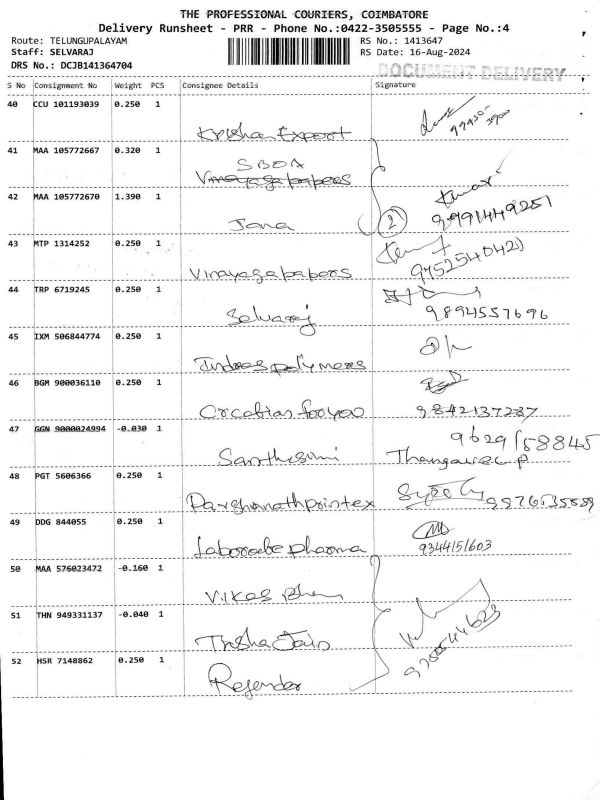 THE PROFESSIONAL COURIERS, COIMBATORE
Delivery Runsheet - PRR - Phone No.:0422-3505555 - Page No.:4
Route: TELUNGUPALAYAM
Staff: SELVARAJ
DRS No.: DCJB141364704
RS No.: 1413647
RS Date: 16-Aug-2024
DOCUMENT DELIVERY
S No Consignment No Weight PCS Consignee Details Signature
40 CCU 101193039 0.250 1
Krishan Export
41 MAA 105772667 0.320 1
SBOA
Vinayaga papers
42 MAA 105772670 1.390 1
Jana
2
Kumar
43 MTP 1314252 0.250 1
Vinayaga papers
9452540421
44 TRP 6719245 0.250 1
Selvaraj
9894557696
45 IXM 506844774 0.250 1
Indras polymers
46 BGM 900036110 0.250 1
9842137237
47 GGN 9000024994 -0.030 1
48 PGT 5606366 0.250 1
Parshonath printex
49 DDG 844055 0.250 1
Laborate pharma
9344151603
50 MAA 576023472 -0.160 1
Vikas
51 THN 949331137 -0.040 1
Trisha Jain
52 HSR 7148862 0.250 1
Rajender